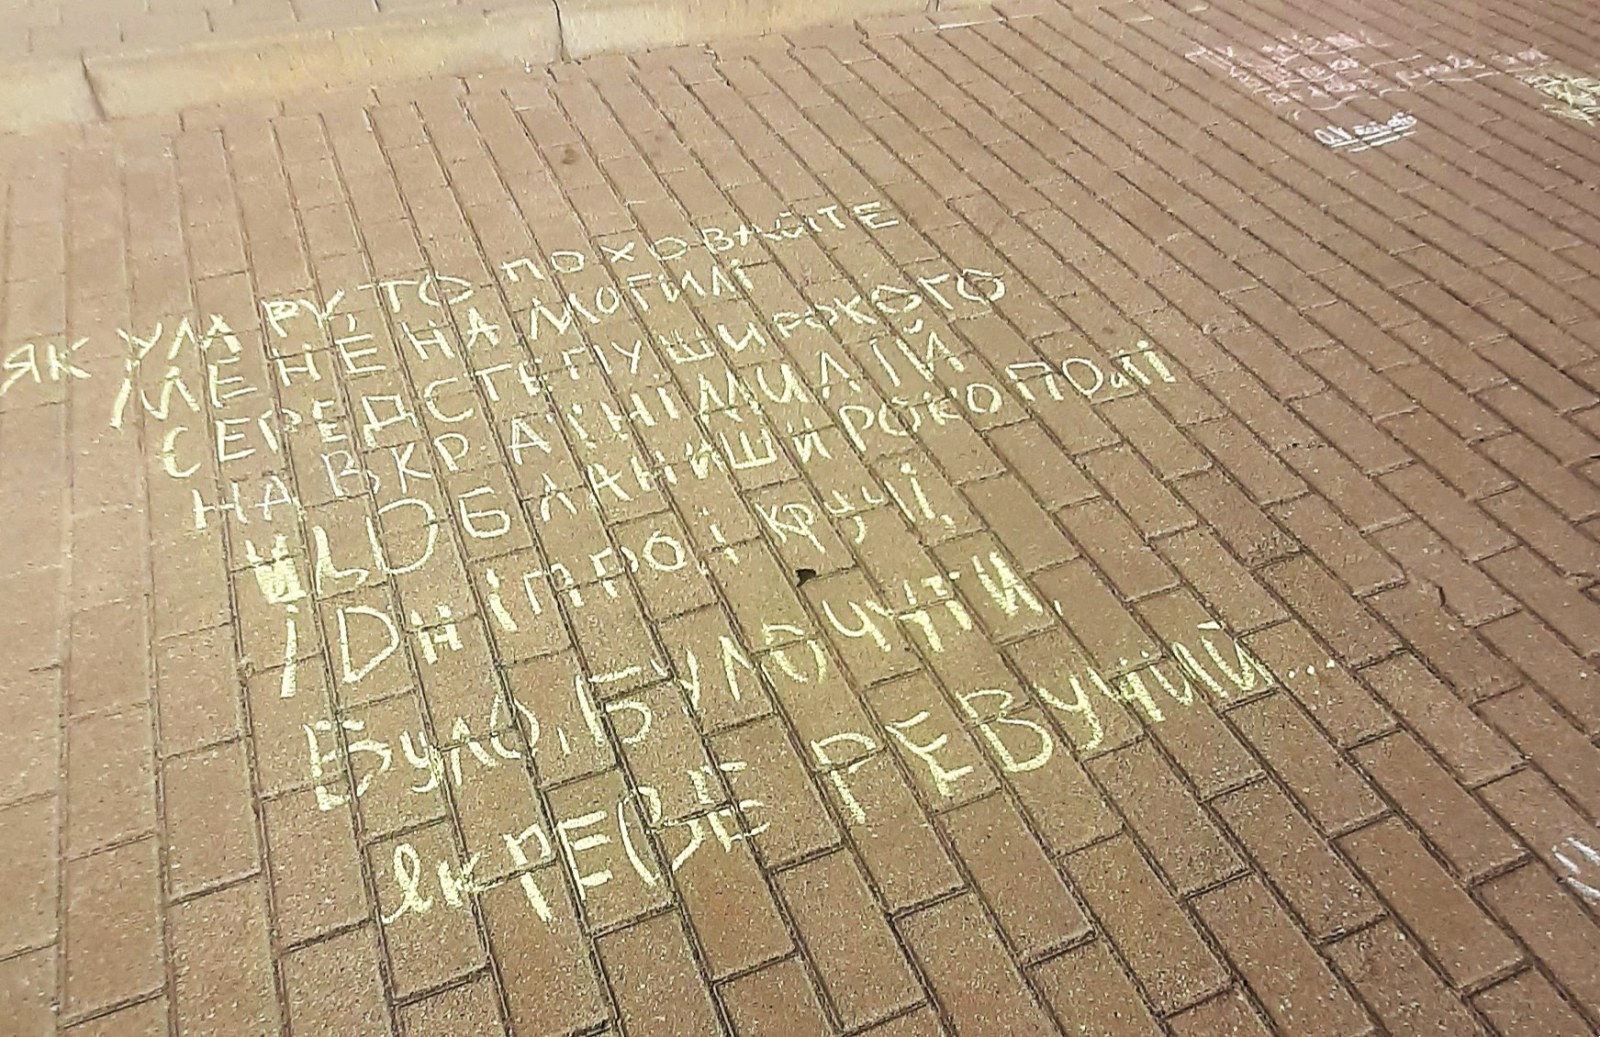 ЯК УМРУ, ТО ПОХОВАЙТЕ
МЕНЕ НА МОГИЛІ
СЕРЕД СТЕПУ ШИРОКОГО
НА ВКРАЇНІ МИЛІЙ
ЩОБ ЛАНИ ШИРОКОПОЛІ
І Дніпро, і кручі,
Було, Було чути,
як РЕВЕ РЕВУЧИЙ...